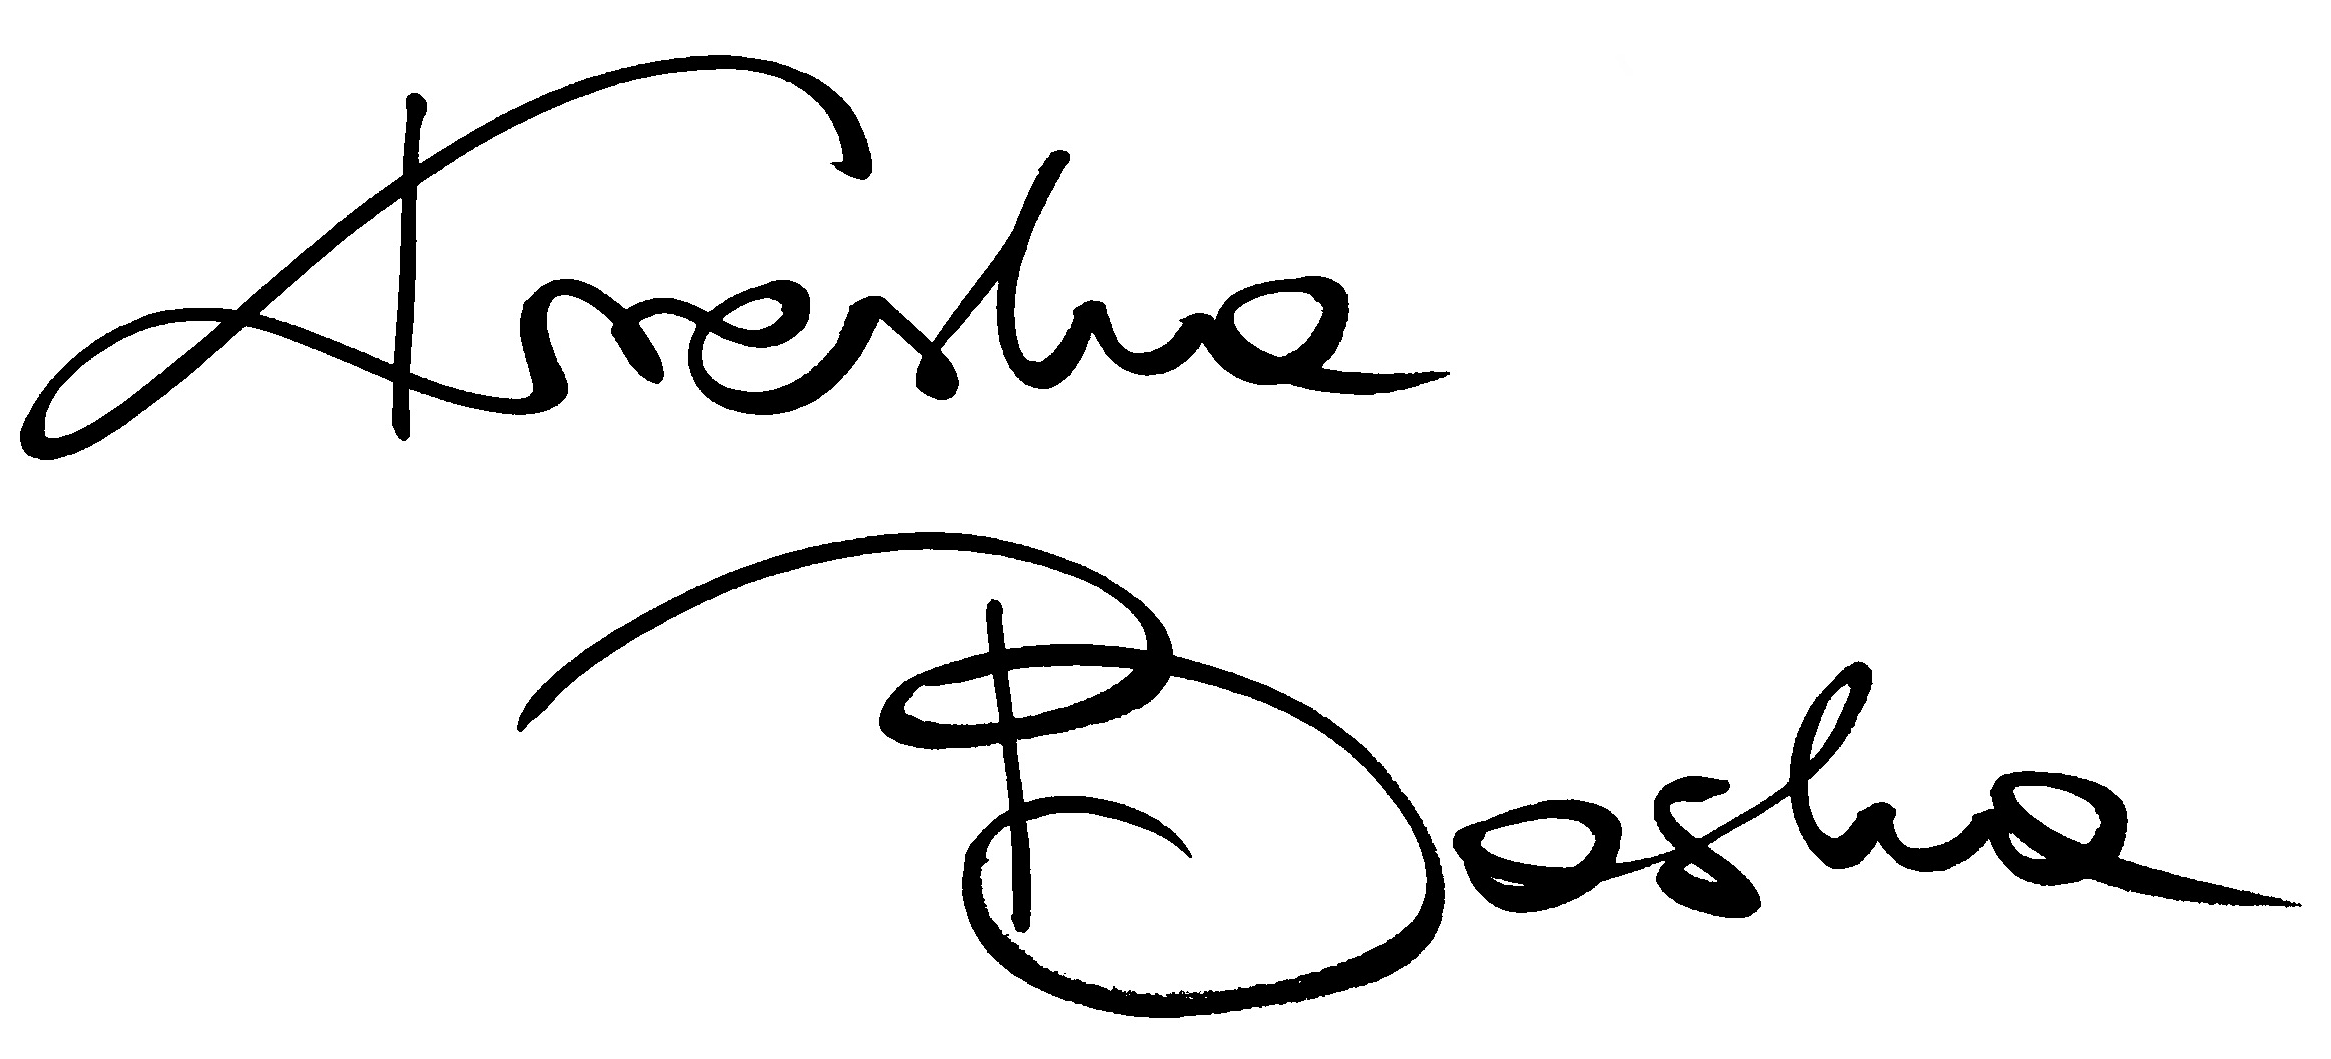 Anesha
Basha